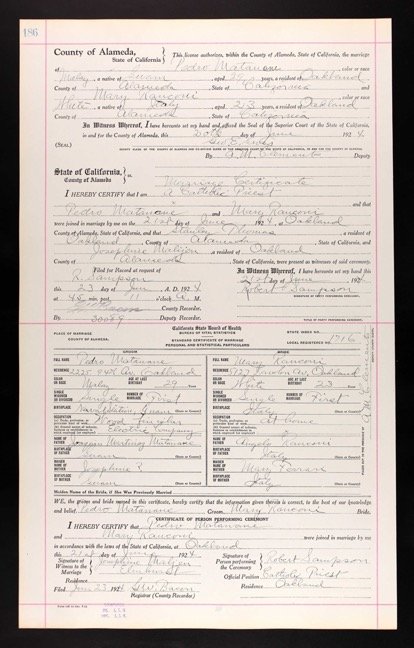 186
County of Alameda, State of California
This license authorizes, within the County of Alameda, State of California, the marriage
of Pedro Matanane, color or race
Malay, a native of Guam, aged 29 years, a resident of Oakland
County of Alameda, State of California and
Mary Ranconi, color or race
White, a native of Italy, aged 23 years, a resident of Oakland
County of Alameda, State of California
In Witness Whereof, I have hereunto set my hand and affixed the Seal of the Superior Court of the State of California
in and for the County of Alameda, this day of June 1924
(SEAL) Geo. E. Gross
By Deputy
State of California, } ss.
County of Alameda
Marriage Certificate
I HEREBY CERTIFY that I am a Catholic Priest
and that
Pedro Matanane and Mary Ranconi
were joined in marriage by me on the 21st day of June 1924, Oakland
County of Alameda, State of California, and that Stanley Thomas, a resident of
Oakland County of Alameda, State of California, and
Josephine, a resident of Oakland
County of Alameda, State of California, were present as witnesses of said ceremony.
Filed for Record at request of
R. Sampson
23 day of Jun A.D. 1924
at 45 min. past 11 o'clock A. M.
County Recorder.
By Deputy Recorder.
30089
In Witness Whereof, I have hereunto set my hand this
21st day of June 1924
Robert Sampson
SIGNATURE OF PARTY PERFORMING CEREMONY.
TITLE OF PARTY PERFORMING CEREMONY.
PLACE OF MARRIAGE
COUNTY OF ALAMEDA.
California State Board of Health
BUREAU OF VITAL STATISTICS
STANDARD CERTIFICATE OF MARRIAGE
PERSONAL AND STATISTICAL PARTICULARS
STATE INDEX NO.
LOCAL REGISTERED NO. 1716
GROOM
FULL NAME Pedro Matanane
RESIDENCE 2225 94th Av. Oakland
COLOR OR RACE Malay AGE AT LAST BIRTHDAY 29 (Years)
SINGLE, WIDOWED OR DIVORCED Single NUMBER OF MARRIAGE First
BIRTHPLACE Guam (State or Country)
OCCUPATION
NAME OF FATHER Joaquin Matanane
BIRTHPLACE OF FATHER Guam (State or Country)
MAIDEN NAME OF MOTHER Josephine ?
BIRTHPLACE OF MOTHER Guam (State or Country)
BRIDE
FULL NAME Mary Ranconi
RESIDENCE Av, Oakland
COLOR OR RACE White AGE AT LAST BIRTHDAY 23 (Years)
SINGLE, WIDOWED OR DIVORCED Single NUMBER OF MARRIAGE First
BIRTHPLACE Italy (State or Country)
OCCUPATION At Home
NAME OF FATHER Angelo Ranconi
BIRTHPLACE OF FATHER Italy (State or Country)
MAIDEN NAME OF MOTHER Mary
BIRTHPLACE OF MOTHER Italy (State or Country)
Maiden Name of the Bride, if She Was Previously Married
WE, the groom and bride named in this certificate, hereby certify that the information given therein is correct, to the best of our knowledge
and belief. Pedro Matanane Groom. Mary Ranconi Bride.
CERTIFICATE OF PERSON PERFORMING CEREMONY
I HEREBY CERTIFY that Pedro Matanane
and Mary Ranconi were joined in marriage by me
in accordance with the laws of the State of California, at Oakland
this 21st day of June 1924
Signature of Witness to the Marriage Josephine
Residence Elmhurst
Signature of Person performing the Ceremony Robert Sampson
Official Position Catholic Priest
Residence Oakland
Filed Jun 23 1924 G.W. Bacon
Registrar (County Recorder)